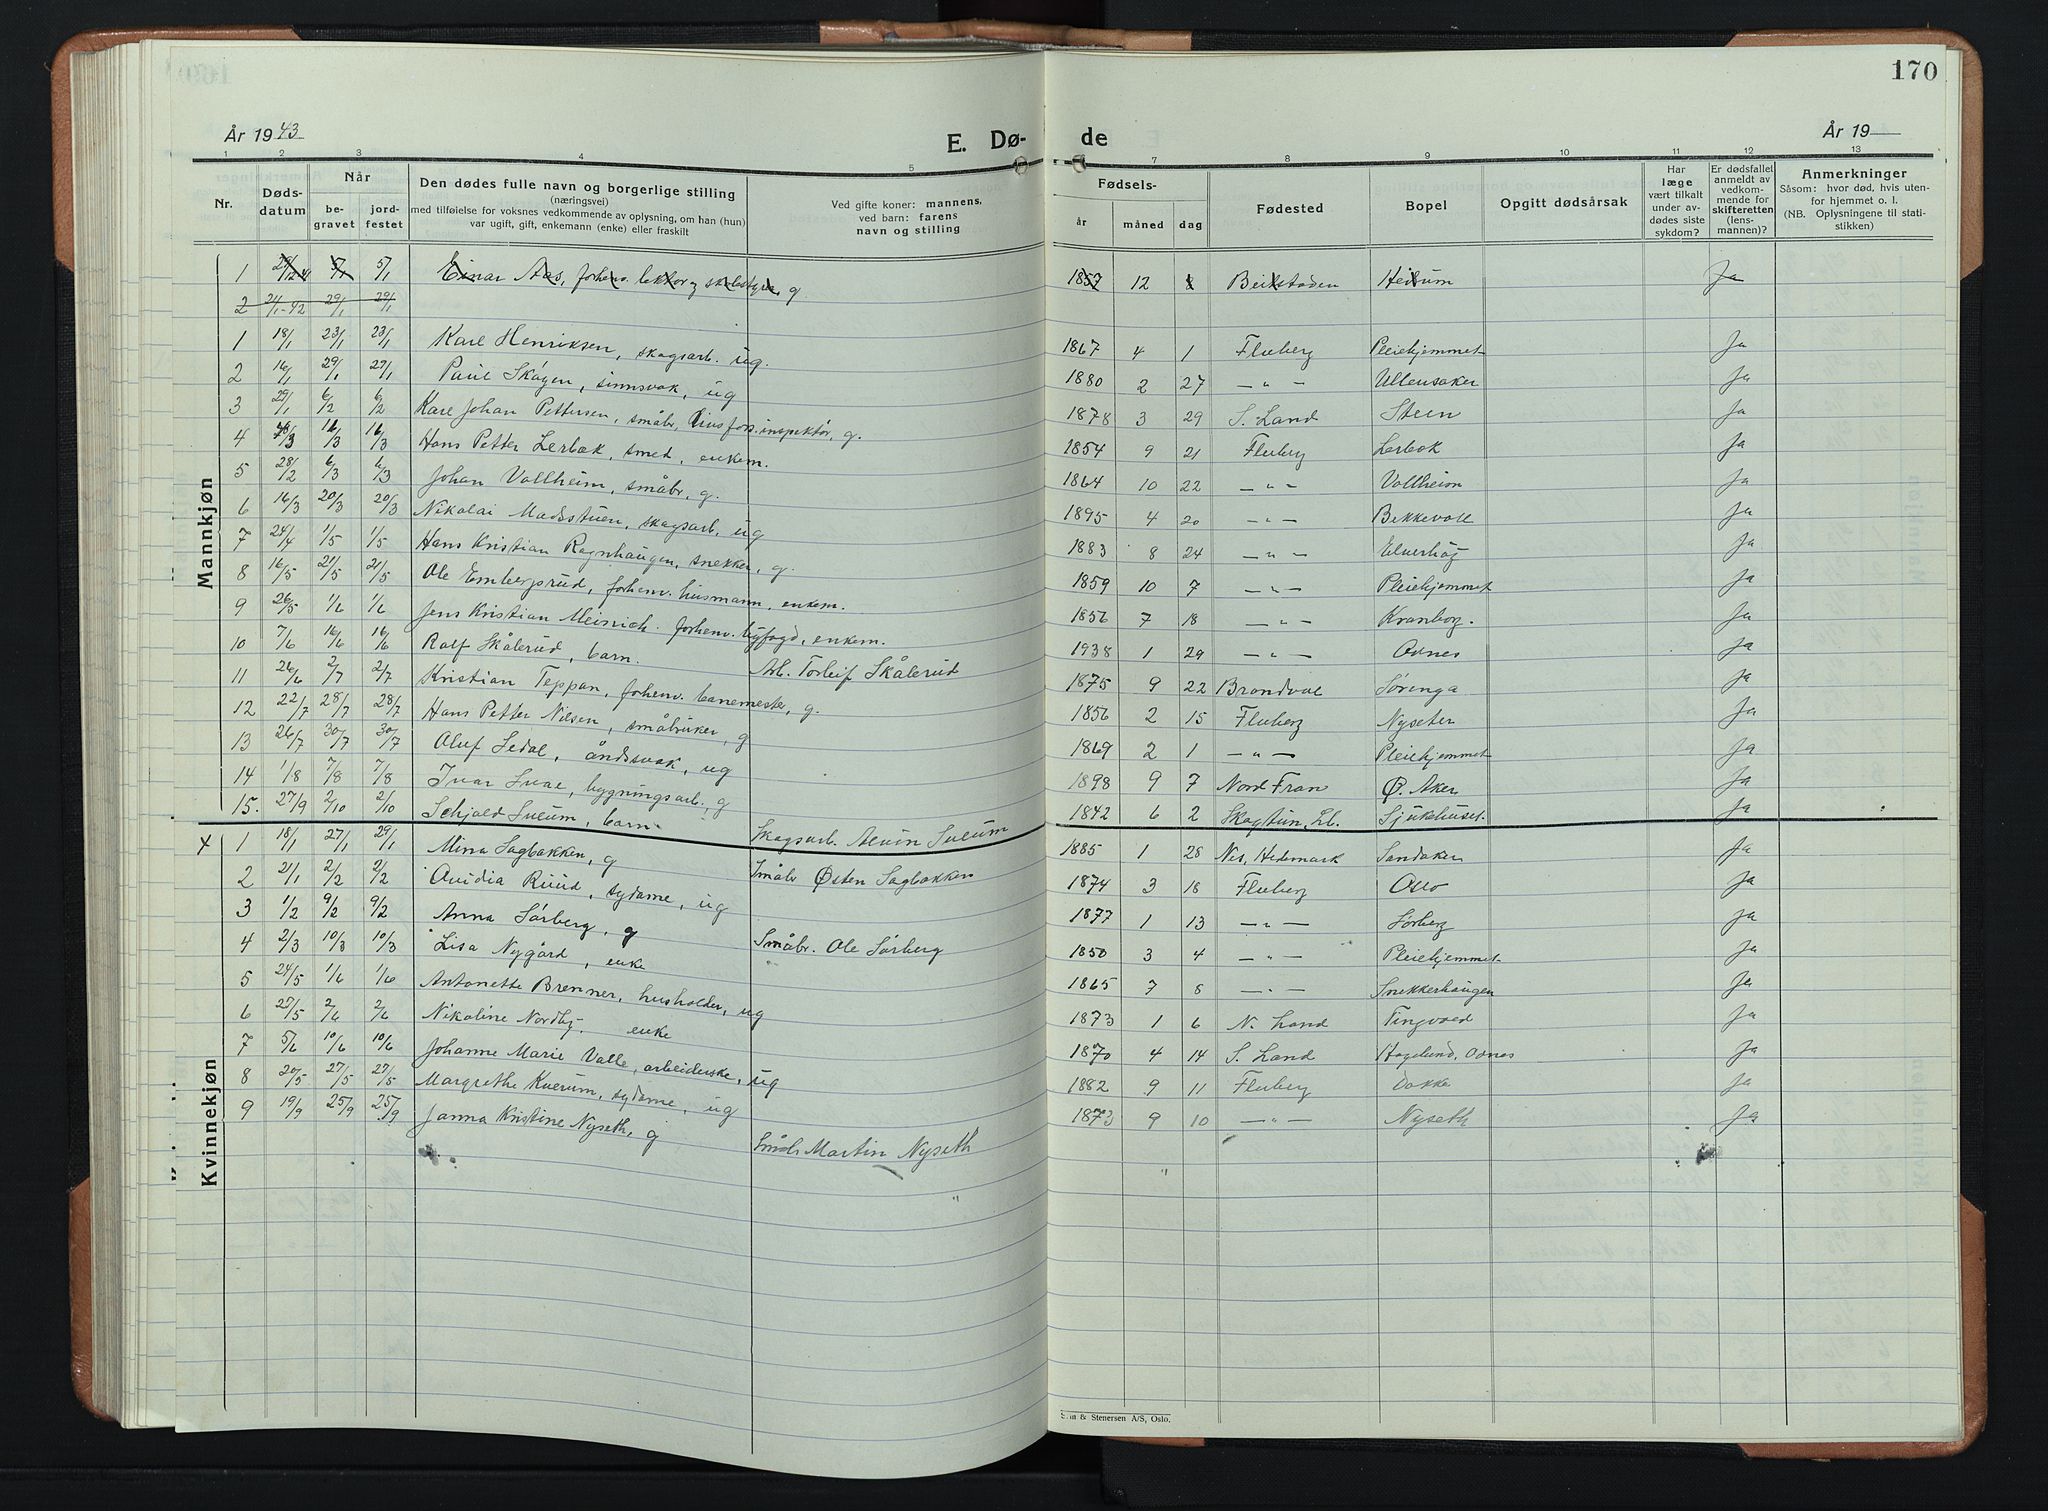 170
År 1943
E. Dø-
de
År 19
1 2 3 4 5 7 8 9 10 11 12 13
Nr. Dødsdatum Når begravet jordfestet
Den dødes fulle navn og borgerlige stilling
(næringsvei)
med tilføielse for voksnes vedkommende av oplysning, om han (hun)
var ugift, gift, enkemann (enke) eller fraskilt
Ved gifte koner: mannens,
ved barn: farens
navn og stilling
Fødsels-
år måned dag
Fødested Bopel Opgitt dødsårsak
Har læge vært tilkalt under avdødes siste sykdom?
Er dødsfallet anmeldt av vedkommende for skifteretten (lensmannen)?
Anmerkninger
Såsom: hvor død, hvis utenfor hjemmet o. l.
(NB. Oplysningene til statistikken)
Mannkjøn
1 5/1 5/1 Einar Aas, forhenv. lektor og skolestyrer, g 1857 12 Beitstaden Ja
2 21/1-42 29/1 29/1
1 18/1 23/1 23/1 Karl Henriksen, skogsarb. ug. 1867 4 1 Fluberg Pleiehjemmet Ja
2 16/1 29/1 29/1 Paul Skogen, sinnsvak, ug 1880 2 27 — " — Ullensaker Ja
3 29/1 6/2 6/2 Karl Johan Pettersen, småbr, g. 1878 3 29 S. Land Steen Ja
4 16/3 16/3 Hans Petter Lerbak, smed, enkem. 1854 9 21 Fluberg Lerbak Ja
5 28/2 6/3 6/3 Johan Vollheim, småbr, g. 1864 10 22 — " — Vollheim Ja
6 16/3 20/3 20/3 Nikolai Madsstuen, skogsarb, ug 1895 4 20 — " — Bekkevoll Ja
7 24/4 1/5 1/5 Hans Kristian Rognhaugen, snekker, g. 1883 8 24 — " — Elverhøg Ja
8 16/5 21/5 21/5 Ole Embergsrud, forhenv. husmann, enkem. 1859 10 7 — " — Pleiehjemmet Ja
9 26/5 1/6 1/6 Jens Kristian Meinich. forhenv. byfogd, enkem. 1856 7 18 — " — Kronborg. Ja
10 7/6 16/6 16/6 Rolf Skålerud, barn. Arb. Torleif Skålerud 1938 1 29 — " — Odnes Ja
11 26/6 2/7 2/7 Kristian Teppan, forhenv. banemester, g. 1875 9 22 Brandval Sørenga Ja
12 22/7 28/7 28/7 Hans Petter Nilsen, småbruker, g 1856 2 15 Fluberg Nyseter Ja
13 26/7 30/7 30/7 Oluf Sedal, åndssvak, ug 1869 2 1 — " — Pleiehjemmet Ja
14 1/8 7/8 7/8 Ivar Svae, bygningsarb. g 1898 9 7 Nord Fron Ø. Aker Ja
15. 27/9 2/10 2/10 Schjold Sveum, barn. Skogsarb. Alvin Sveum 1842 6 2 Sjukehuset. Ja
Kvinnekjøn
x 1 18/1 27/1 29/1 Mina Sagbakken, g Småbr Østen Sagbakken 1885 1 28 Nes, Hedemark Sandaker Ja
2 21/1 2/2 2/2 Ovidia Ruud, sydame, ug 1874 3 18 Fluberg Oslo Ja
3 1/2 9/2 9/2 Anna Sørberg, g Småbr. Ole Sørberg 1877 1 13 — " — Sørberg Ja
4 2/3 10/3 10/3 Lisa Nygård, enke 1850 3 4 — " — Pleiehjemmet Ja
5 24/5 1/6 1/6 Antonette Brenner, husholder, ug 1865 7 8 — " — Snekkerhaugen Ja
6 27/5 2/6 2/6 Nikoline Nordby. enke 1873 1 6 N. Land Tingvold Ja
7 5/6 10/6 10/6 Johanne Marie Valle, arbeiderske, ug 1870 4 14 S. Land Hagelund, Odnes Ja
8 20/5 27/5 27/5 Margrethe Kverum, sydame, ug 1882 9 11 Fluberg Dokka Ja
9 19/9 25/9 25/9 Janna Kristine Nyseth, g Småb. Martin Nyseth 1873 9 10 — " — Nyseth Ja
& Stenersen A/S, Oslo.